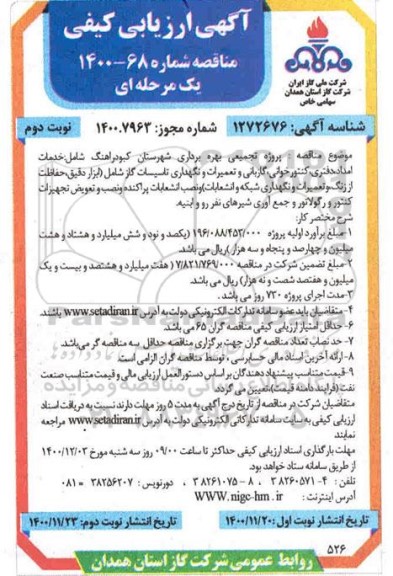 آگهی ارزیابی کیفی
مناقصه شماره ۶۸-۱۴۰۰
یک مرحله ای
شرکت ملی گاز ایران
شرکت گاز استان همدان
سهامی خاص
شناسه آگهی: ۱۲۷۲۶۷۶
شماره مجوز: ۱۴۰۰.۷۹۶۳
نوبت دوم
موضوع مناقصه : پروژه تجمیعی بهره برداری شهرستان کبودراهنگ شامل:خدمات
امداد،دفتری،کنتورخوانی،گازبانی و تعمیرات و نگهداری تاسیسات گاز شامل (ابزار دقیق،حفاظت
از زنگ،وتعمیرات و نگهداری شبکه و انشعابات)ونصب انشعابات پراکنده ونصب و تعویض تجهیزات
کنتور و رگولاتور و جمع آوری شیرهای نفر رو و ابنیه.
شرح مختصر کار:
۱-مبلغ برآورد اولیه پروژه ۱۹۶/۰۸۸/۴۵۳/۰۰۰ (یکصد و نود و شش میلیارد و هشتاد و هشت
میلیون و چهارصد و پنجاه و سه هزار )ریال می باشد.
۲-مبلغ تضمین شرکت در مناقصه ۷/۸۲۱/۷۶۹/۰۰۰ ( هفت میلیارد و هشتصد و بیست و یک
میلیون و هفتصد شصت و نه هزار) ریال می باشد.
۳-مدت اجرای پروژه ۷۳۰ روز می باشد .
۴- متقاضیان باید عضو سامانه تدارکات الکترونیکی دولت به آدرس www.setadiran.ir باشند.
۶- حداقل امتیاز ارزیابی کیفی مناقصه گران ۶۵ می باشد.
۷- حد نصاب تعداد مناقصه گران جهت برگزاری مناقصه حداقل سه مناقصه گر می‌باشد.
۸- ارائه آخرین اسناد مالی حسابرسی ، توسط مناقصه گران الزامی است.
۹-قیمت متناسب پیشنهاد دهندگان بر اساس دستورالعمل ارزیابی مالی و قیمت متناسب صنعت
نفت (فرایند دامنه قیمت)تعیین می گردد.
متقاضیان شرکت در مناقصه از تاریخ درج آگهی به مدت ۵ روز مهلت دارند نسبت به دریافت اسناد
ارزیابی کیفی به سایت سامانه تدارکاتی الکترونیکی دولت به آدرس www.setadiran.ir مراجعه
نمایند
مهلت بارگذاری اسناد ارزیابی کیفی حداکثر تا ساعت ۰۹/۰۰ روز سه شنبه مورخ ۱۴۰۰/۱۲/۰۳
از طریق سامانه ستاد خواهد بود.
تلفن : ۴-۳۸۲۶۰۵۷۱ ، ۸-۳۸۲۶۱۰۷۵ ، دورنویس : ۳۸۲۵۶۲۰۷ -۰۸۱
آدرس اینترنت : WWW.nigc-hm.ir
تاریخ انتشار نوبت اول :۱۴۰۰/۱۱/۲۰
تاریخ انتشار نوبت دوم: ۱۴۰۰/۱۱/۲۳
۵۲۶
روابط عمومی شرکت گاز استان همدان